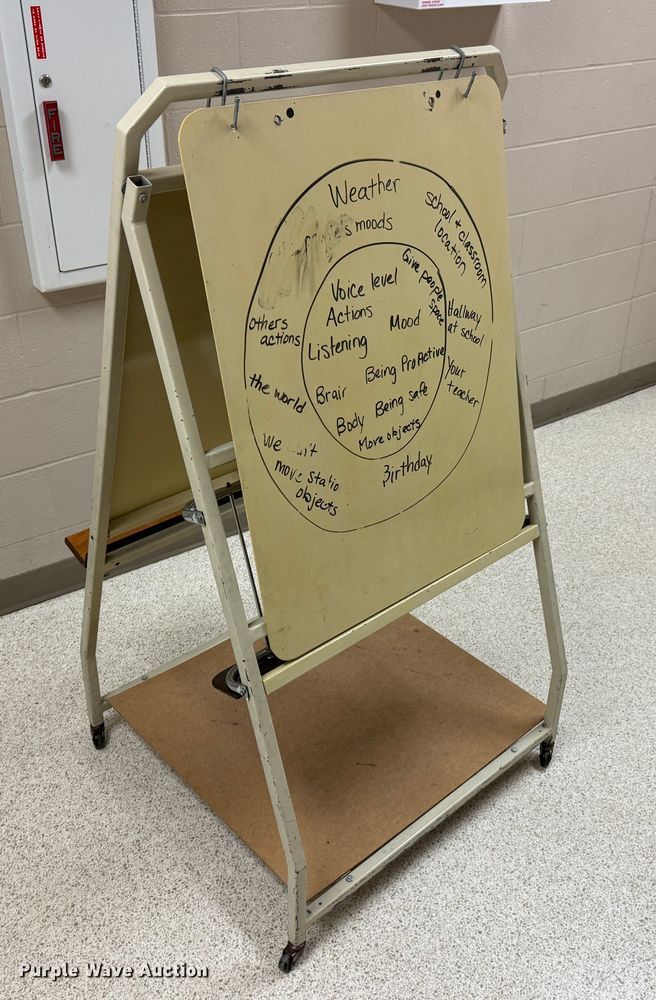 FIRE
Weather
's moods
school & classroom
location
Hallway
at school
Your
teacher
Birthday
We
move statio
objects
the world
Others
actions
Voice level
Give people
space
Actions
Mood
Listening
Being ProActive
Brair
Being safe
Body
Move objects
Purple Wave Auction